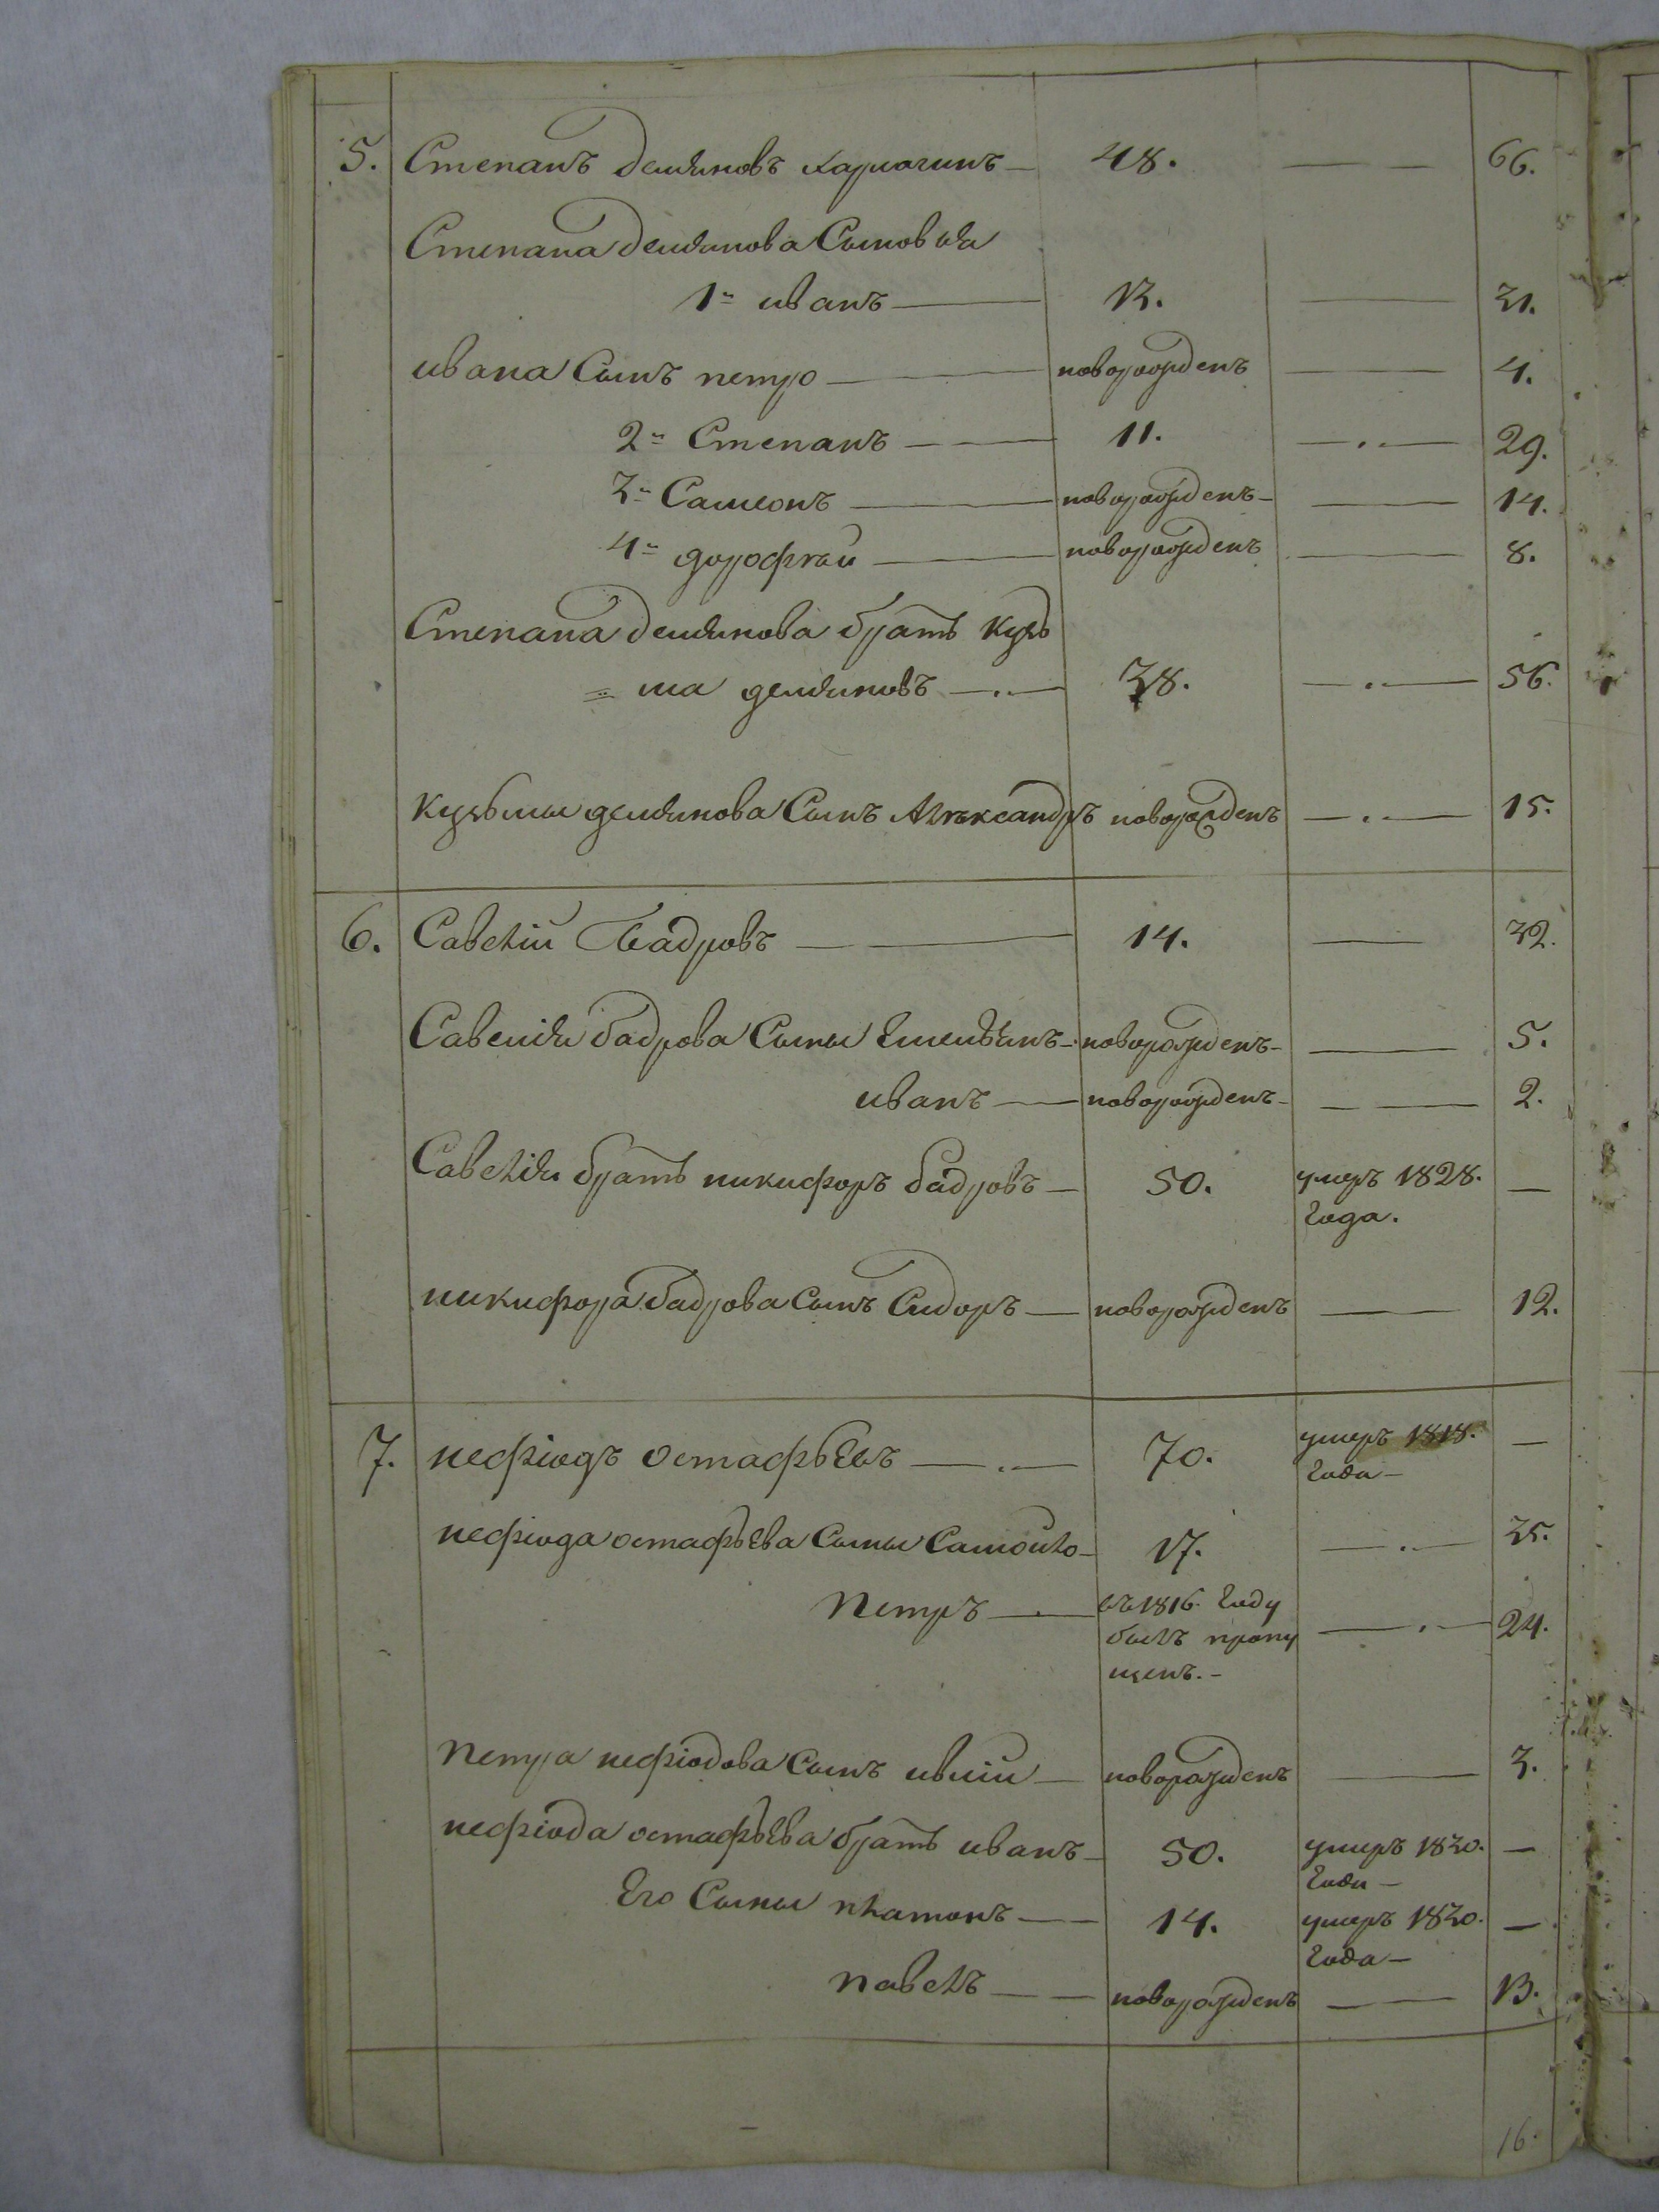 5. Степанъ демяновъ кармачинъ — 48. — 66.
Степана демянова Сыновья
1й иванъ — 13. — 31.
ивана Сынъ петро — новорожденъ — 4.
2й Степанъ — 11. — 29.
3й Самсонъ — новорожденъ — 14.
4й дорофѣй — новорожденъ — 8.
Степана демянова братъ Кузь
= ма демяновъ — 38. — 56.
Кузьмы демянова Сынъ Алѣксандръ новорожденъ — 15.
6. Савелiй Бадровъ — 14. — 32.
Савелiя бадрова Сыны Емельянъ — новорожденъ — 5.
иванъ — новорожденъ — 2.
Савелiя братъ никифоръ бадровъ — 50. умеръ 1828. —
года.
никифора бадрова Сынъ Сидоръ — новорожденъ — 12.
7. нефiодъ остафьевъ — 70. умеръ 1818. —
года —
нефiода остафьева Сыны Самойло — 17. — 35.
Петръ — въ 1816. году — 24.
былъ пропу
щенъ. —
Петра нефiодова Сынъ — новорожденъ — 3.
нефiода остафьева братъ иванъ — 50. умеръ 1830. —
года —
Его Сыны платонъ — 14. умеръ 1830. —
года —
павелъ — новорожденъ — 13.
16.